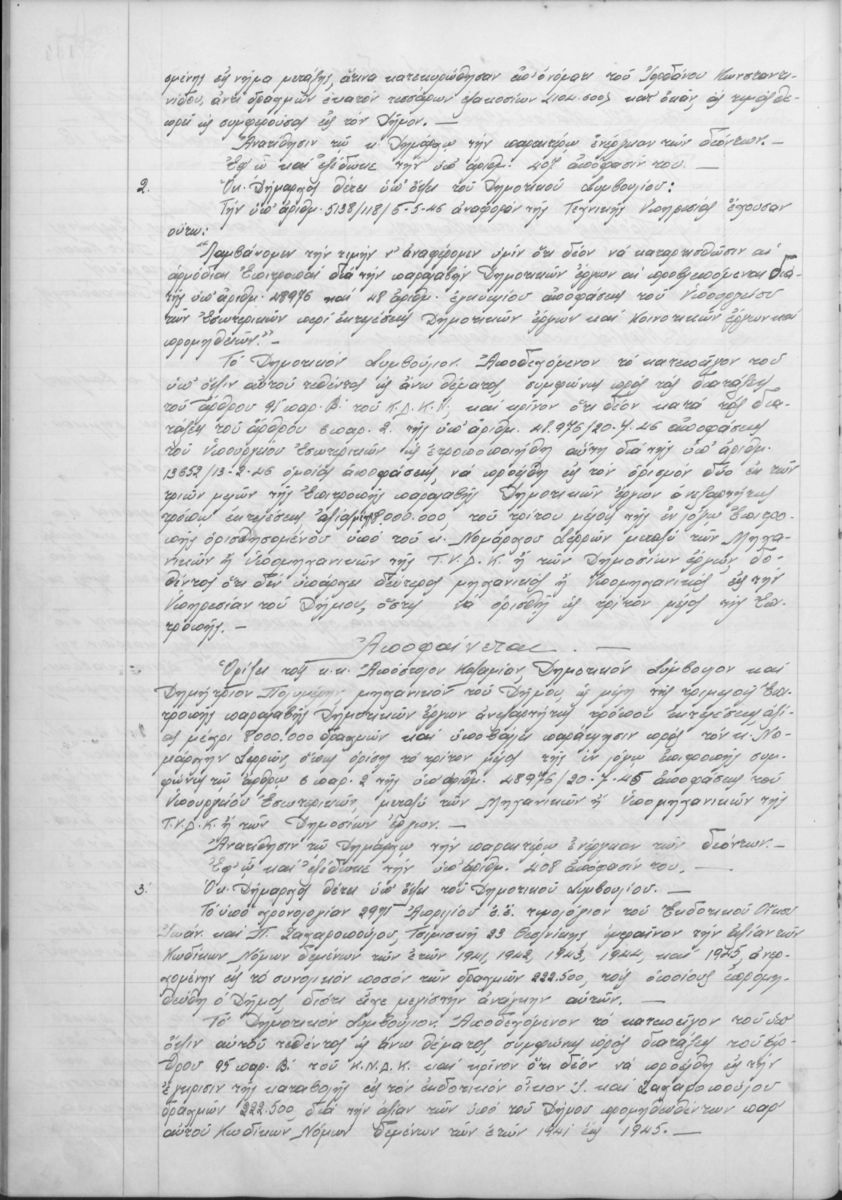 σμένης εἰς νῆμα μετάξης, ἅτινα κατεκυρώθησαν ἐπ' ὀνόματι τοῦ Ἰορδάνου Κωνσταντι-
νίδου, ἀντὶ δραχμῶν ἑκατὸν τεσσάρων ἑξακοσίων κατ' ὀκᾶν, ὡς τιμὰς θε-
ωρεῖ ὡς συμφερούσας εἰς τὸν Δῆμον. —
Ἀνατίθησιν τῷ κ. Δημάρχῳ τὴν παραιτέρω ἐνέργειαν τῶν δεόντων. —
Ἐφ' ᾧ καὶ ἐξέδωκε τὴν ὑπ' ἀριθμ. 407 ἀπόφασίν του. —
2. Ὁ κ. Δήμαρχος θέτει ὑπ' ὄψει τοῦ Δημοτικοῦ Συμβουλίου:
Τὴν ὑπ' ἀριθμ. 5138/118/6-5-46 ἀναφορὰν τῆς Τεχνικῆς Ὑπηρεσίας ἔχουσαν
οὕτω:
"Λαμβάνομεν τὴν τιμὴν ν' ἀναφέρομεν ὑμῖν ὅτι δέον νὰ καταρτισθῶσιν αἱ
ἁρμόδιαι Ἐπιτροπαὶ διὰ τὴν παραλαβὴν Δημοτικῶν ἔργων αἱ προβλεπόμεναι διὰ
τῆς ὑπ' ἀριθμ. 48976 καὶ 48 ἀριθμ. ἐγκυκλίου ἀποφάσεως τοῦ Ὑπουργείου
τῶν Ἐσωτερικῶν περὶ ἐκτελέσεως Δημοτικῶν ἔργων καὶ Κοινοτικῶν ἔργων καὶ
προμηθειῶν." —
Τὸ Δημοτικὸν Συμβούλιον. Ἀποδεχόμενον τὸ κατεπεῖγον τοῦ
ὑπ' ὄψιν αὐτοῦ τεθέντος ὡς ἄνω θέματος, συμφώνως πρὸς τὰς διατάξεις
τοῦ ἄρθρου 95 παρ. Β. τοῦ Κ.Δ.Κ.Ν., καὶ κρῖνον ὅτι δέον κατὰ τὰς δια-
τάξεις τοῦ ἄρθρου 6 παρ. 2. τῆς ὑπ' ἀριθμ. 48.976/20-7-45 ἀποφάσεως
τοῦ Ὑπουργείου Ἐσωτερικῶν ὡς ἐτροποποιήθη αὕτη διὰ τῆς ὑπ' ἀριθμ.
13652/13-2-46 ὁμοίας ἀποφάσεως, νὰ προέλθῃ εἰς τὸν ὁρισμὸν δύο ἐκ τῶν
τριῶν μελῶν τῆς Ἐπιτροπῆς παραλαβῆς Δημοτικῶν ἔργων ἀνεξαρτήτως
τρόπου ἐκτελέσεως ἀξίας μέχρι 8000.000 τοῦ τρίτου μέλους τῆς ἐν λόγῳ Ἐπιτρο-
πῆς ὁρισθησομένου ὑπὸ τοῦ κ. Νομάρχου Σερρῶν μεταξὺ τῶν Μηχα-
νικῶν ἢ Ὑπομηχανικῶν τῆς Τ.Υ.Δ.Κ. ἢ τῶν Δημοσίων ἔργων, δο-
θέντος ὅτι δὲν ὑπάρχει δεύτερος μηχανικὸς ἢ Ὑπομηχανικὸς εἰς τὴν
Ὑπηρεσίαν τοῦ Δήμου, ὅστις νὰ ὁρισθῇ ὡς τρίτον μέλος τῆς Ἐπι-
τροπῆς. —
Ἀποφαίνεται. —
Ὁρίζει τοὺς κ.κ. Ἀπόστολον Δημοτικὸν Σύμβουλον καὶ
Δημήτριον μηχανικὸν τοῦ Δήμου, ὡς μέλη τῆς τριμελοῦς Ἐπι-
τροπῆς παραλαβῆς Δημοτικῶν ἔργων ἀνεξαρτήτως τρόπου ἐκτελέσεως ἀξί-
ας μέχρι 8000.000 δραχμῶν καὶ ὑποβάλλει παράκλησιν πρὸς τὸν κ. Νο-
μάρχην Σερρῶν, ὅπως ὁρίσῃ τὸ τρίτον μέλος τῆς ἐν λόγῳ ἐπιτροπῆς συμ-
φώνως τῷ ἄρθρῳ 6 παρ. 2 τῆς ὑπ' ἀριθμ. 48976/20-7-45 ἀποφάσεως τοῦ
Ὑπουργείου Ἐσωτερικῶν, μεταξὺ τῶν Μηχανικῶν ἢ Ὑπομηχανικῶν τῆς
Τ.Υ.Δ.Κ. ἢ τῶν Δημοσίων ἔργων. —
Ἀνατίθησιν τῷ Δημάρχῳ τὴν παραιτέρω ἐνέργειαν τῶν δεόντων. —
Ἐφ' ᾧ καὶ ἐξέδωκε τὴν ὑπ' ἀριθμ. 408 ἀπόφασίν του. —
3. Ὁ κ. Δήμαρχος θέτει ὑπ' ὄψει τοῦ Δημοτικοῦ Συμβουλίου. —
Τὸ ὑπὸ χρονολογίαν 29ης Ἀπριλίου ἐ.ἔ. τιμολόγιον τοῦ Ἐκδοτικοῦ Οἴκου
Ἰωάν. καὶ Π. Σαχαροπούλου, Τσιμισκῆ 23 Θεσ/νίκης ἐμφαῖνον τὴν ἀξίαν τῶν
Κωδίκων Νόμων δεμένων τῶν ἐτῶν 1941, 1942, 1943, 1944, καὶ 1945, ἀνερ-
χομένην εἰς τὸ συνολικὸν ποσὸν τῶν δραχμῶν 222.500, τοὺς ὁποίους ἐπρομη-
θεύθη ὁ Δῆμος διότι εἶχε μεγίστην ἀνάγκην αὐτῶν. —
Τὸ Δημοτικὸν Συμβούλιον. Ἀποδεχόμενον τὸ κατεπεῖγον τοῦ ὑπ'
ὄψιν αὐτοῦ τεθέντος ὡς ἄνω θέματος, συμφώνως πρὸς διατάξεις τοῦ ἄρ-
θρου 95 παρ. Β. τοῦ Κ.Ν.Δ.Κ. καὶ κρῖνον ὅτι δέον νὰ προέλθῃ εἰς τὴν
ἔγκρισιν τῆς καταβολῆς εἰς τὸν ἐκδοτικὸν οἶκον Ι. καὶ Σαχαροπούλου
δραχμῶν 222.500, διὰ τὴν ἀξίαν τῶν ὑπὸ τοῦ Δήμου προμηθευθέντων παρ'
αὐτοῦ Κωδίκων Νόμων δεμένων τῶν ἐτῶν 1941 ἕως 1945. —